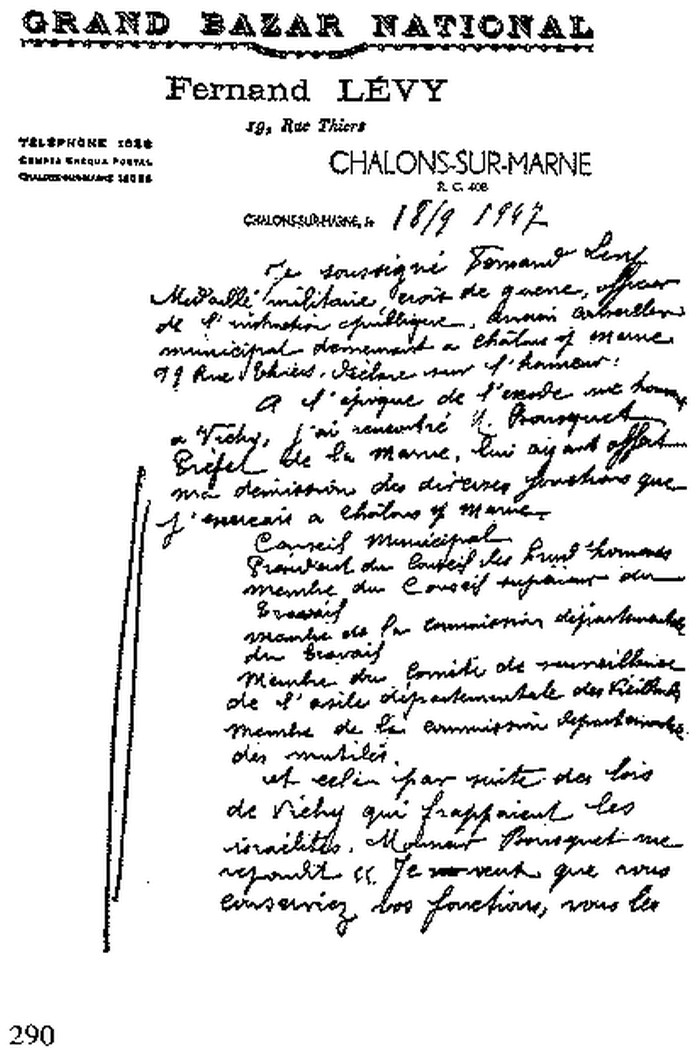 GRAND BAZAR NATIONAL
Fernand LÉVY
19, Rue Thiers
TÉLÉPHONE
COMPTE CHÈQUE POSTAL
CHALONS-SUR-MARNE
CHALONS-SUR-MARNE
R. C. 408
CHALONS-SUR-MARNE, le 18/9 1947
Je soussigné Fernand Levy
Médaillé militaire croix de guerre, officier
de l'instruction publique, ancien conseiller
municipal demeurant a Châlons s/ Marne
19 Rue Thiers. Déclare sur l'honneur :
A l'époque de l'exode me
a Vichy, j'ai rencontré M. Bousquet
Préfet de la Marne, lui ayant offert
ma démission des diverses fonctions que
j'exercais a Châlons s/ Marne
Conseil Municipal
Président du Conseil des Prud'hommes
membre du Conseil supérieur du
Travail
membre de la commission départementale
du Travail
Membre du Comité de surveillance
de l'asile départementale des Vieillards
membre de la commission départementale
des mutilés.
et cela par suite des lois
de Vichy qui frappaient les
israélites. Monsieur Bousquet me
repondit « Je veut que vous
conserviez vos fonctions, vous les
290